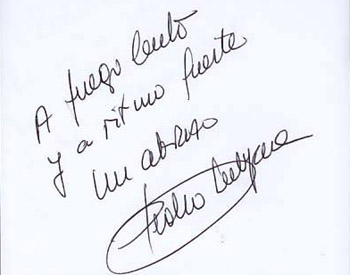 A fuego lento
y a ritmo fuerte
un abrazo
Pedro